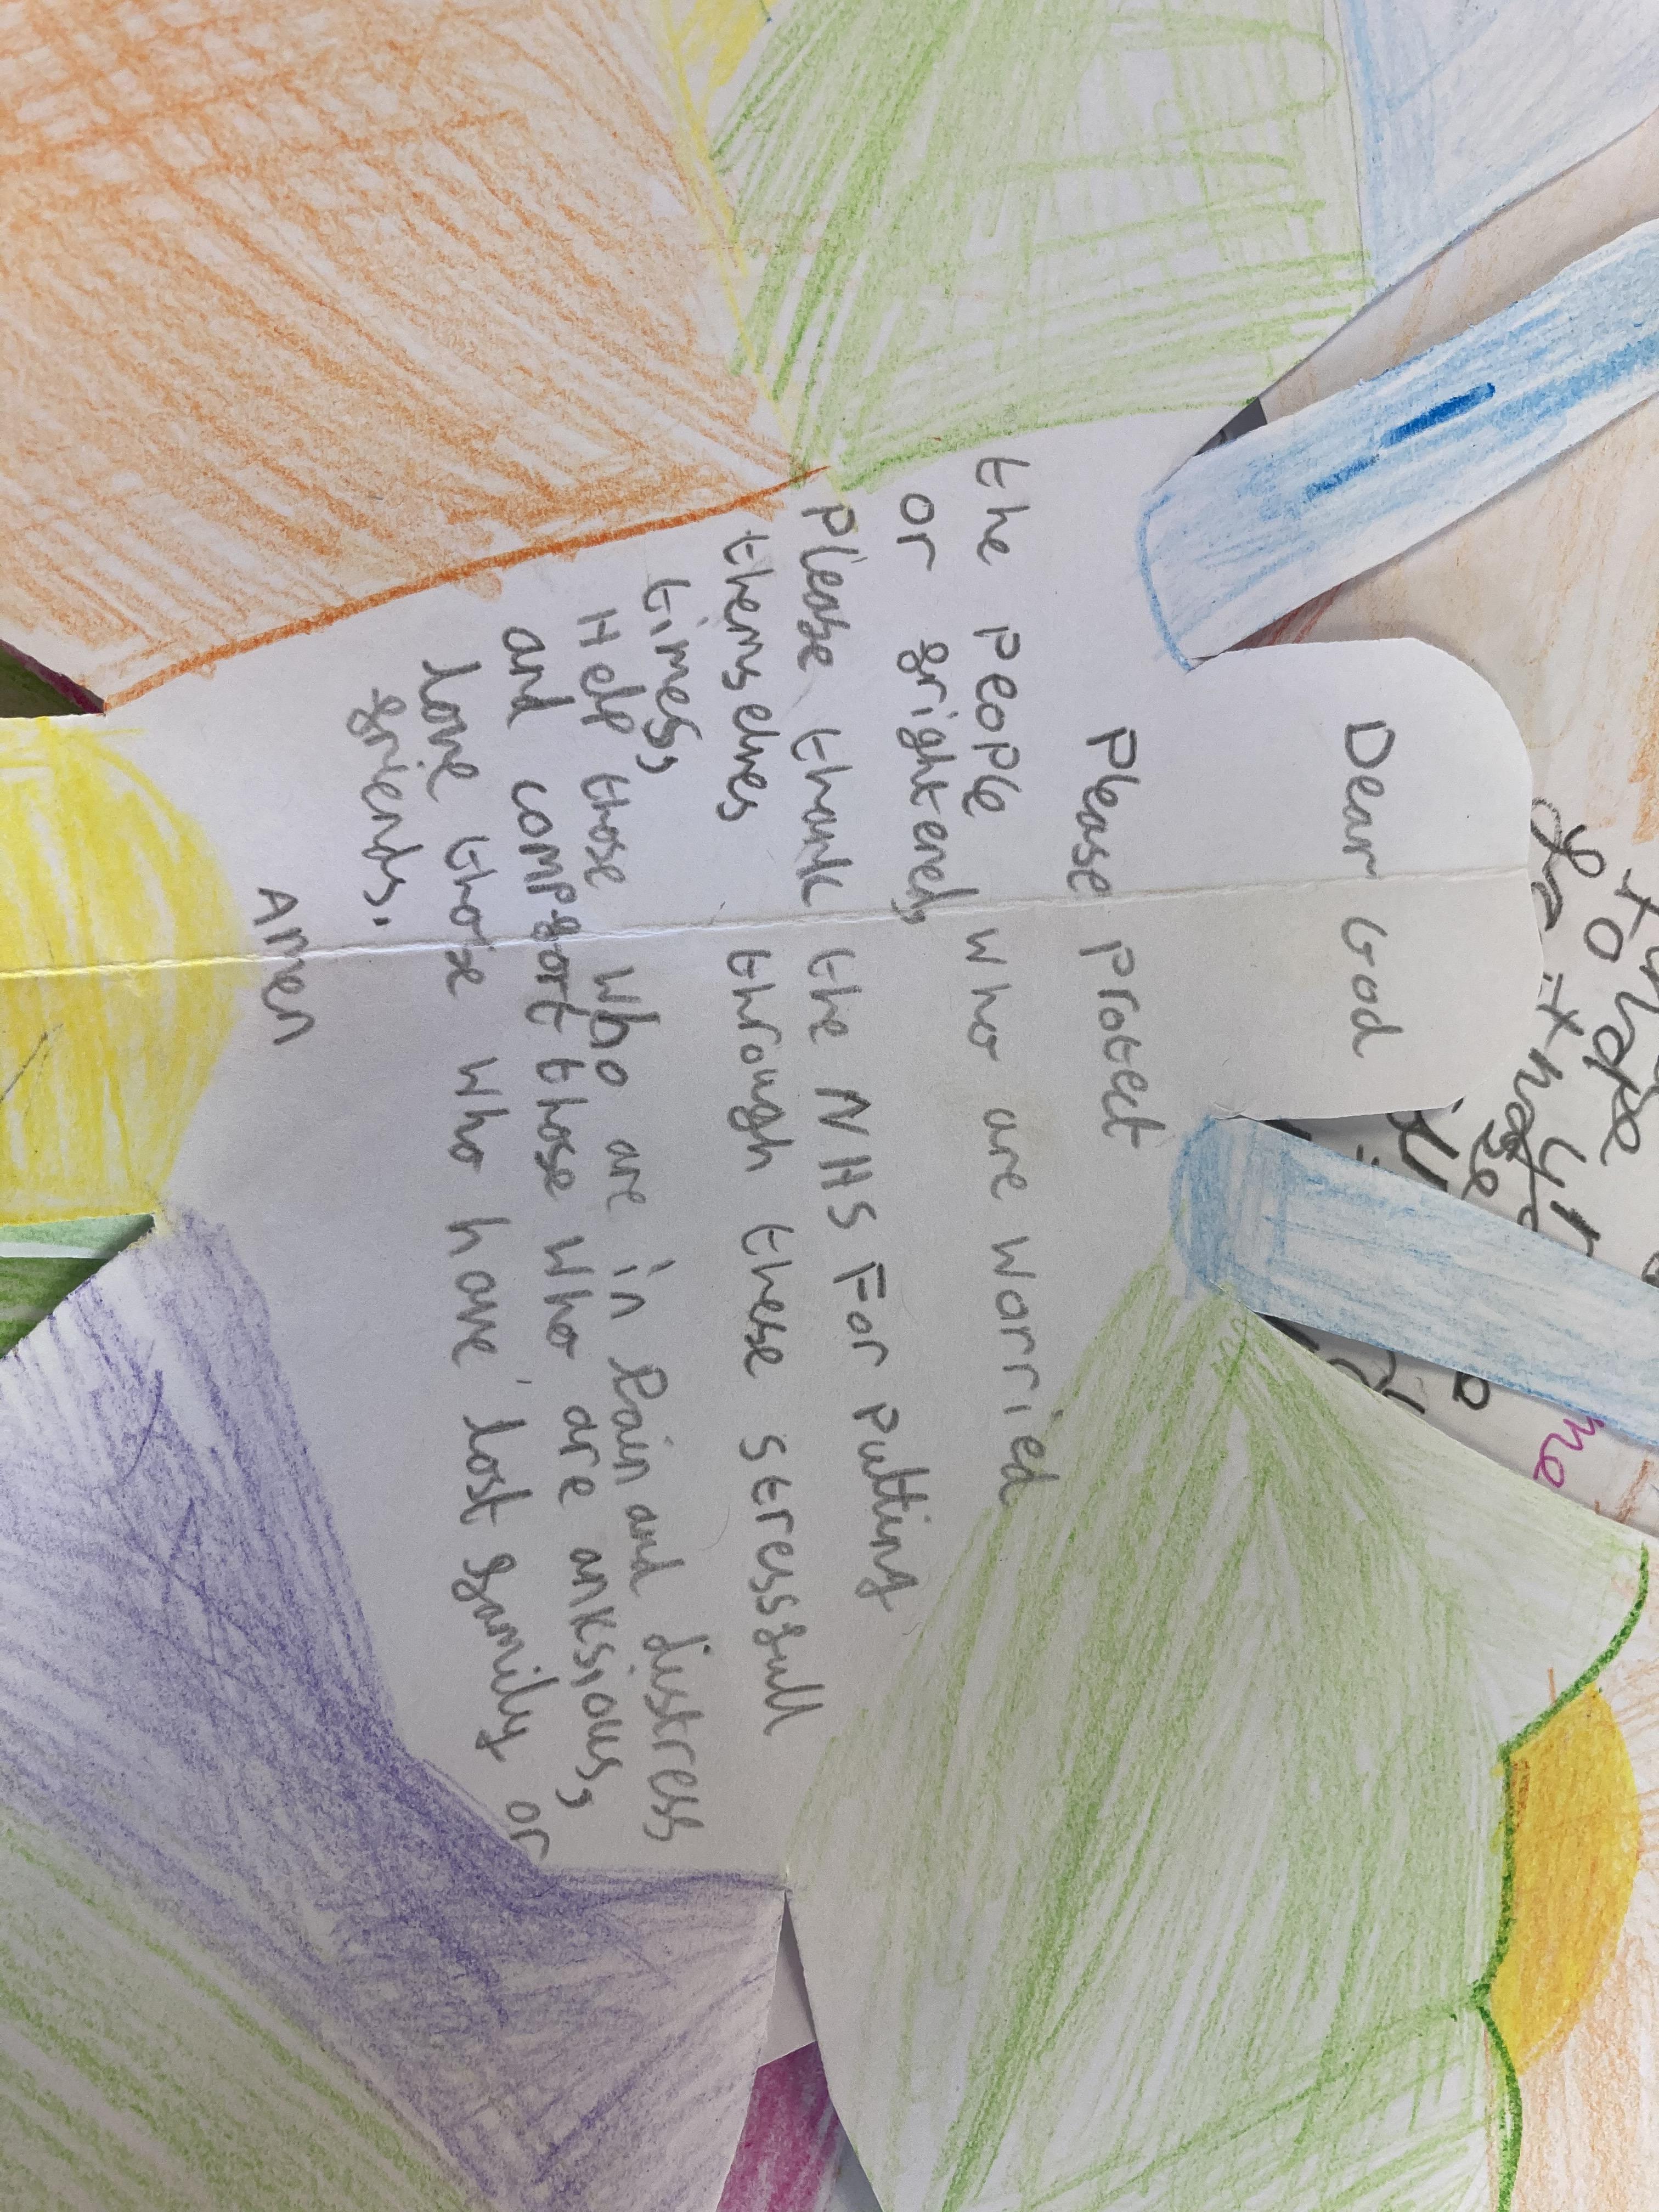 Dear God
Please protect
the people who are worried
or frightened,
please thank the NHS For putting
themselves through these stressfull
times,
Help those who are in Pain and distress
and comfort those who are anksious,
love those who have lost family or
friends.
Amen
to
me